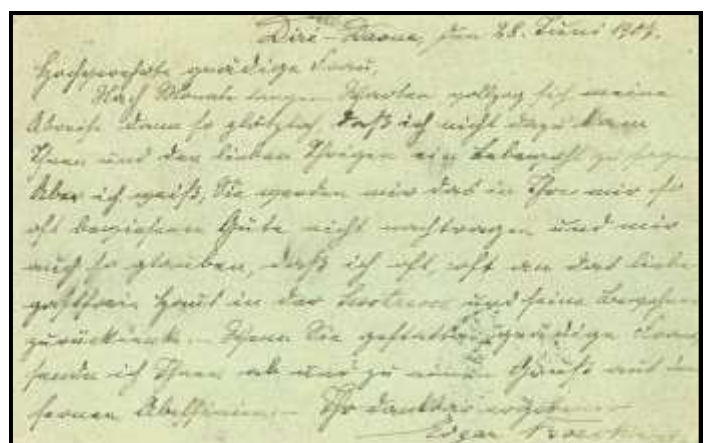 Diré-Daoua, den 28. Juni 1907.
Hochverehrte gnädige Frau,
Nach Monate langem Warten vollzog sich meine
Abreise dann so plötzlich, daß ich nicht dazu kam
Ihnen und den lieben Ihrigen ein Lebewohl zu sagen
Aber ich weiß, Sie werden mir das in Ihrer mir so
oft bewiesenen Güte nicht nachtragen und mir
auch so glauben, daß ich oft, oft an das liebe
gastfreie Haus in der und seine Bewohner
zurückdenke. Wenn Sie gestatten, gnädige Frau
sende ich Ihnen ab und zu einen Gruß aus dem
fernen Abessinien. Ihr dankbar ergebener
Edgar